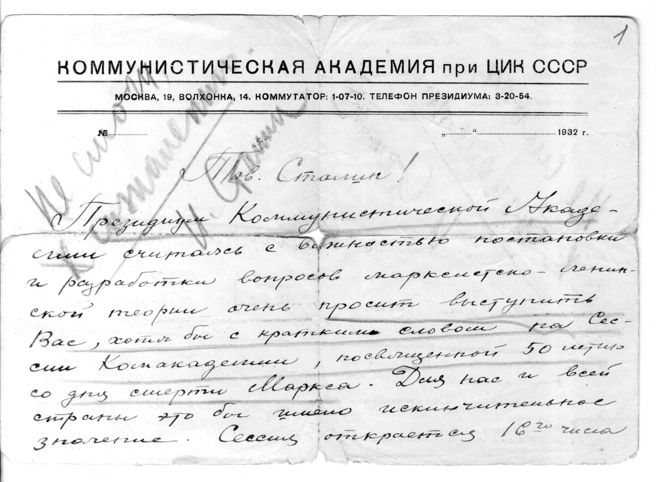 1
КОММУНИСТИЧЕСКАЯ АКАДЕМИЯ при ЦИК СССР
МОСКВА, 19, ВОЛХОНКА, 14. КОММУТАТОР: 1-07-10. ТЕЛЕФОН ПРЕЗИДИУМА: 3-20-54.
№ „ “ 1932 г.
Не
И. Сталин
Тов. Сталин!
Президиум Коммунистической Акаде-
мии считаясь с важностью постановки
и разработки вопросов марксистско-ленин-
ской теории очень просит выступить
Вас, хотя бы с кратким словом на Сес-
сии Комакадемии, посвященной 50 летию
со дня смерти Маркса. Для нас и всей
страны это бы имело исключительное
значение. Сессия открается 16го числа